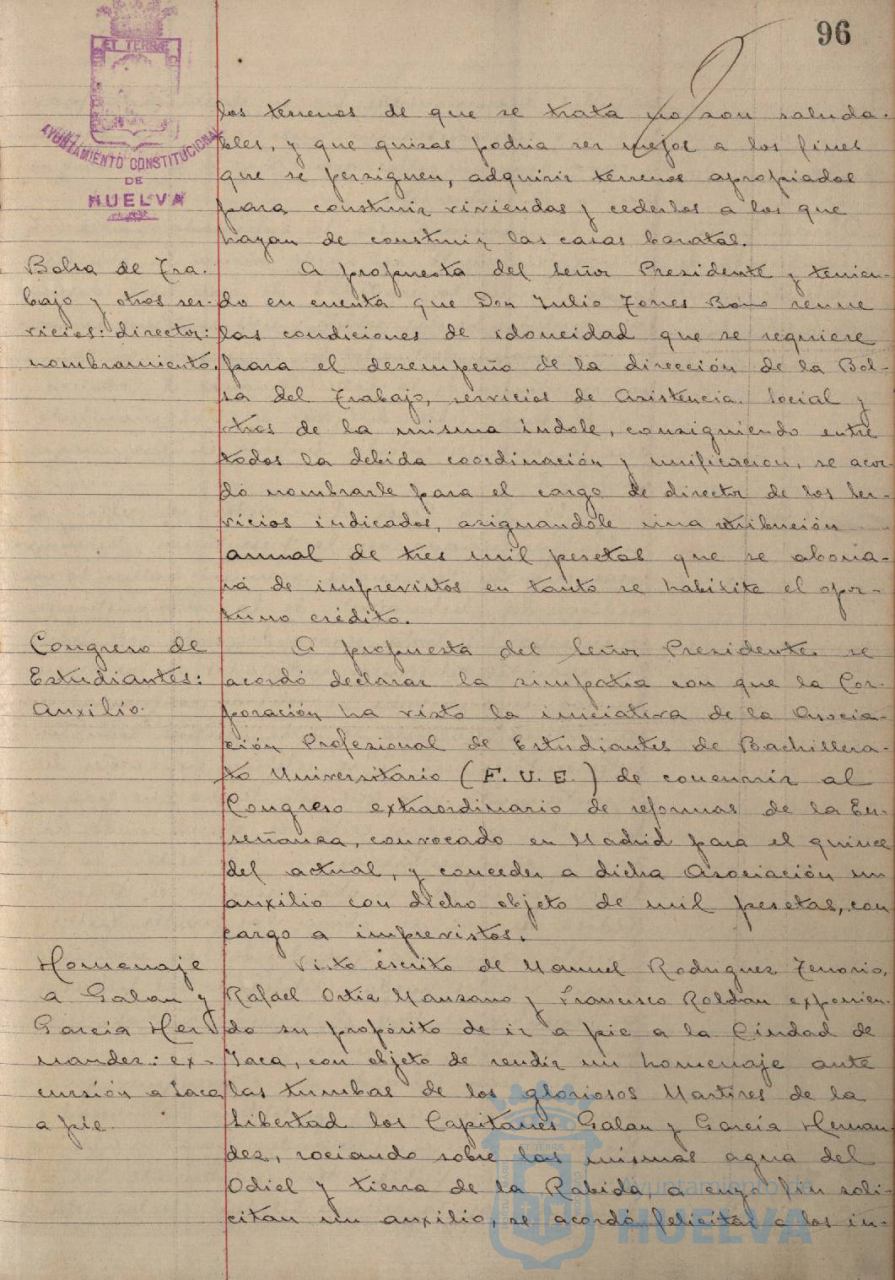 96
ET TERRÆ
AYUNTAMIENTO CONSTITUCIONAL
DE
HUELVA
los terrenos de que se trata no son saluda-
bles, y que quizas podria ser mejor a los fines
que se persiguen, adquirir terrenos apropiados
para construir viviendas y cederlos a los que
hayan de construir las casas baratas.
Bolsa de Tra-
bajo y otros ser-
vicios: director:
nombramiento.
A propuesta del Señor Presidente y tenien-
do en cuenta que Don Julio Torres reune
las condiciones de idoneidad que se requiere
para el desempeño de la dirección de la Bol-
sa del Trabajo, servicios de Asistencia Social y
otros de la misma indole, consiguiendo entre
todos la debida coordinación y unificacion, se acor-
dó nombrarle para el cargo de director de los Ser-
vicios indicados, asignandole una
annal de tres mil pesetas que se abona-
rá de imprevistos en tanto se habilite el opor-
tuno crédito.
Congreso de
Estudiantes:
Auxilio.
A propuesta del Señor Presidente se
acordó declarar la simpatia con que la Cor-
poración ha visto la iniciativa de la Asocia-
ción Profesional de Estudiantes de Bachillera-
to Universitario (F. U. E.) de concurrir al
Congreso extraordinario de reformas de la En-
señanza, convocado en Madrid para el quince
del actual, y conceder a dicha Asociación un
auxilio con dicho objeto de mil pesetas, con
cargo a imprevistos.
Homenaje
a Galan y
García Her
nandez: ex-
cursión a Jaca
a pie.
Visto escrito de Manuel Rodriguez Tenorio,
Rafael Ortiz Manzano y Francisco Roldan exponien-
do su propósito de ir a pie a la Ciudad de
Jaca, con objeto de rendir un homenaje ante
las tumbas de los gloriosos Martires de la
Libertad los Capitanes Galan y García Hernan
dez, rociando sobre las mismas agua del
Odiel y tierra de la Rabida, a cuyo fin soli-
citan un auxilio, se acordó felicitar a los in-
Ayuntamiento de
HUELVA